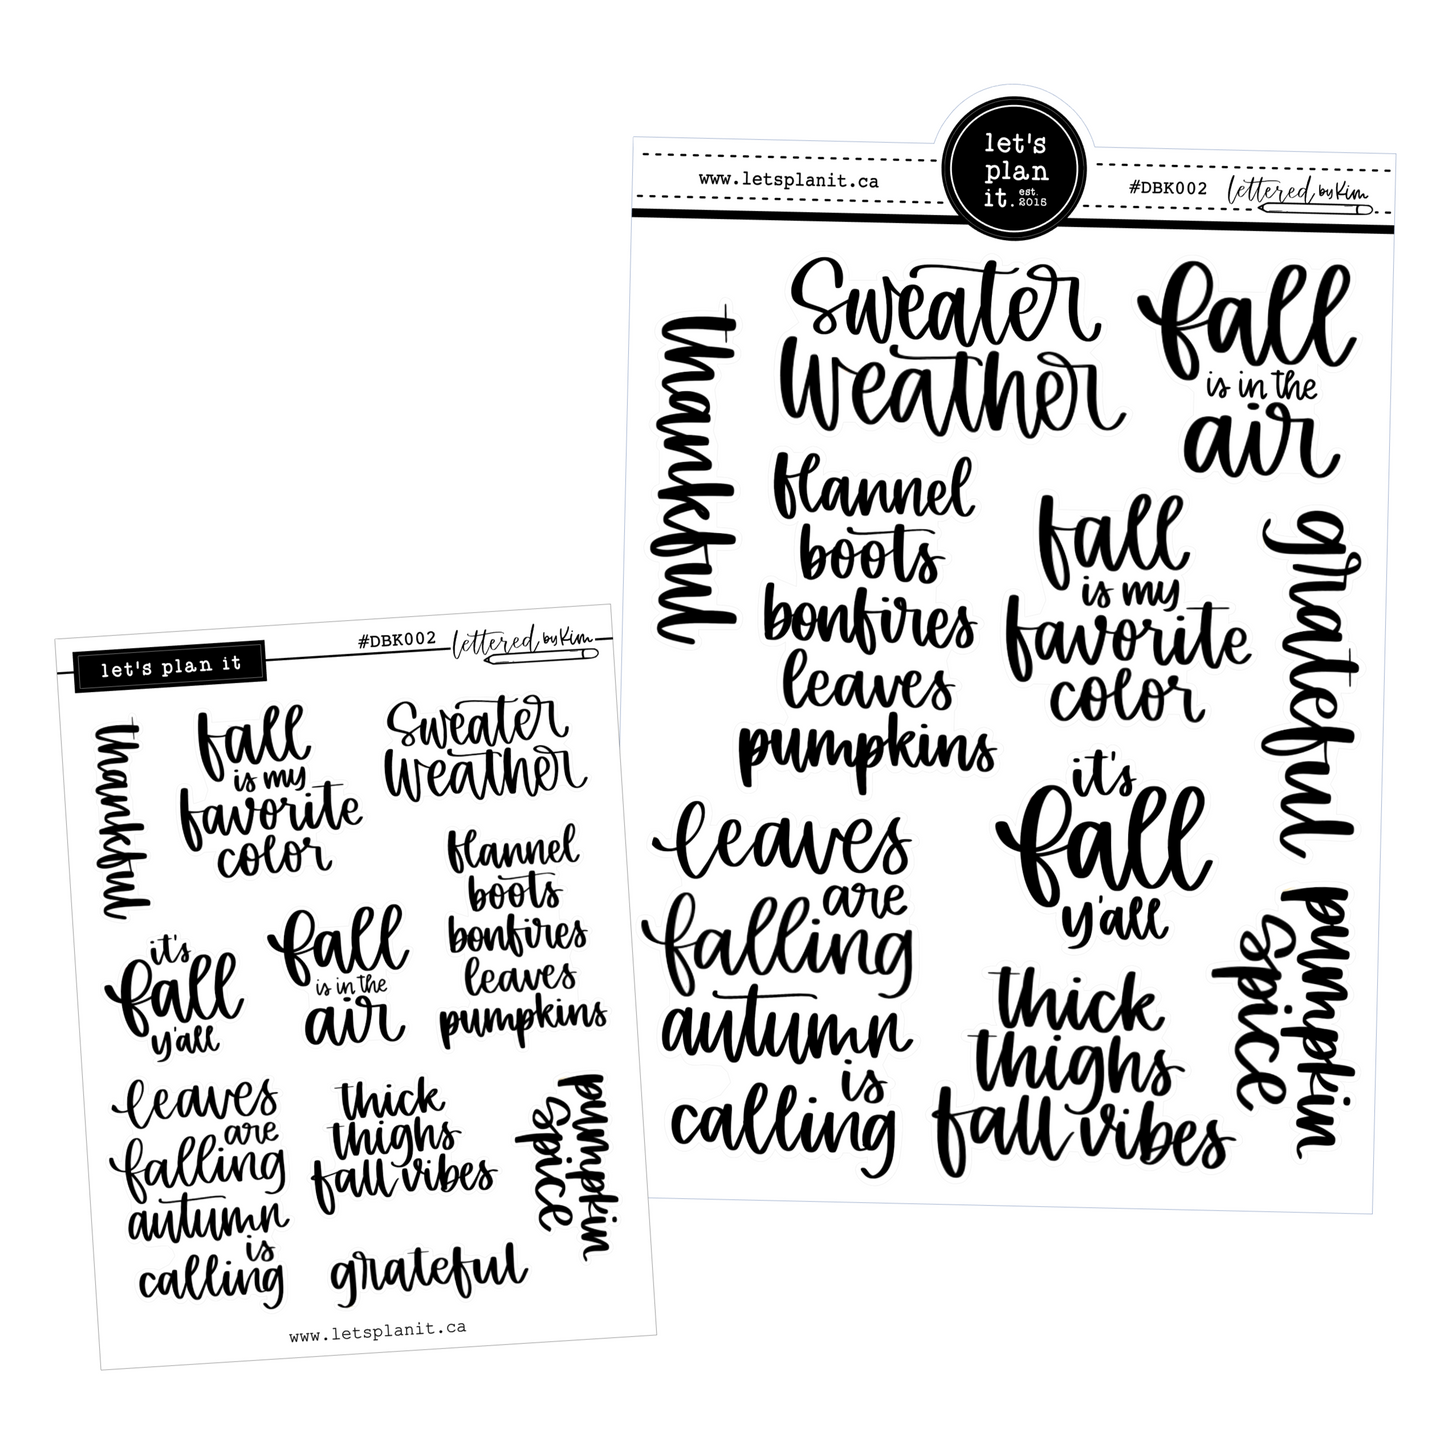 let's plan it
#DBK002
lettered by Kim
thankful
fall
is my
favorite
color
Sweater
Weather
flannel
boots
bonfires
leaves
pumpkins
it's
fall
y'all
fall
is in the
air
leaves
are
falling
autumn
is
calling
thick
thighs
fall vibes
pumpkin
spice
grateful
www.letsplanit.ca
www.letsplanit.ca
let's
plan
it. est. 2015
#DBK002
lettered by Kim
thankful
Sweater
Weather
fall
is in the
air
flannel
boots
bonfires
leaves
pumpkins
fall
is my
favorite
color
grateful
it's
fall
y'all
leaves
are
falling
autumn
is
calling
thick
thighs
fall vibes
pumpkin
spice